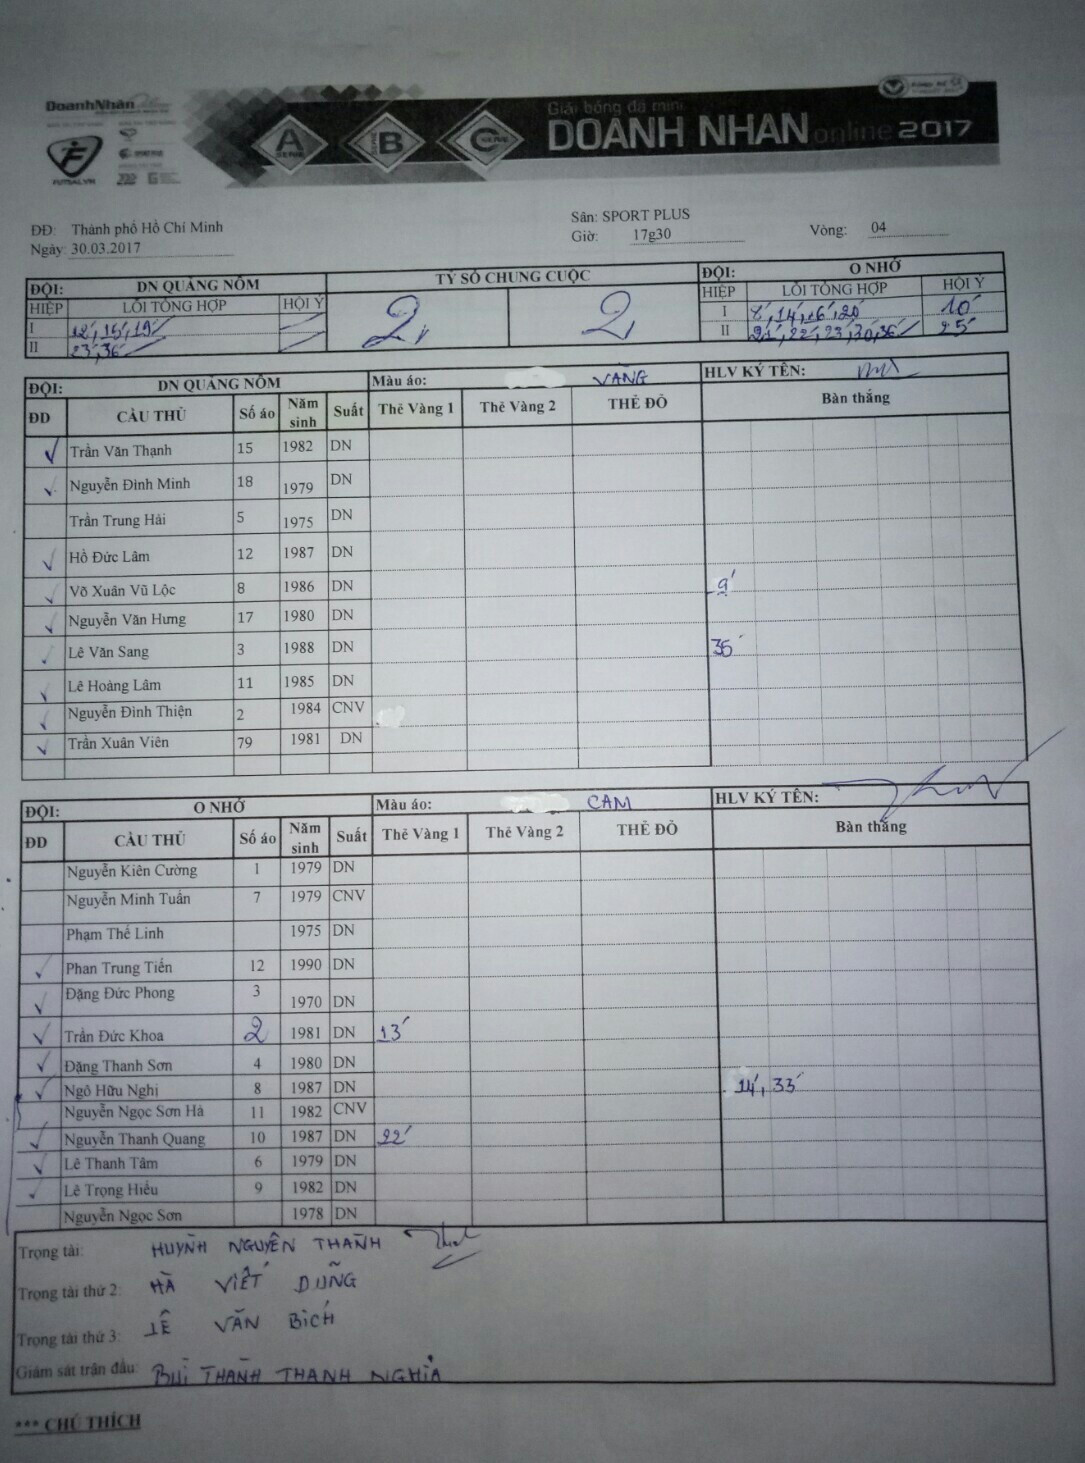 DoanhNhân
FUTSAL.VN
A
B
C
Giải bóng đá mini
DOANH NHAN online 2017
ĐĐ: Thành phố Hồ Chí Minh
Ngày: 30.03.2017
Sân: SPORT PLUS
Giờ: 17g30
Vòng: 04
ĐỘI: DN QUẢNG NÔM TỶ SỐ CHUNG CUỘC ĐỘI: O NHỚ
HIỆP LỖI TỔNG HỢP HỘI Ý 2 2 HIỆP LỖI TỔNG HỢP HỘI Ý
I 12', 15', 19' I 8', 14', 16', 20' 10'
II 23', 36' II 21', 22', 23', 30, 36' 25'
ĐỘI: DN QUẢNG NÔM Màu áo: VÀNG HLV KÝ TÊN:
ĐD CẦU THỦ Số áo Năm sinh Suất Thẻ Vàng 1 Thẻ Vàng 2 THẺ ĐỎ Bàn thắng
Trần Văn Thạnh 15 1982 DN
Nguyễn Đình Minh 18 1979 DN
Trần Trung Hải 5 1975 DN
Hồ Đức Lâm 12 1987 DN
Võ Xuân Vũ Lộc 8 1986 DN 9'
Nguyễn Văn Hưng 17 1980 DN
Lê Văn Sang 3 1988 DN 35'
Lê Hoàng Lâm 11 1985 DN
Nguyễn Đình Thiện 2 1984 CNV
Trần Xuân Viên 79 1981 DN
ĐỘI: O NHỚ Màu áo: CAM HLV KÝ TÊN:
ĐD CẦU THỦ Số áo Năm sinh Suất Thẻ Vàng 1 Thẻ Vàng 2 THẺ ĐỎ Bàn thắng
Nguyễn Kiên Cường 1 1979 DN
Nguyễn Minh Tuấn 7 1979 CNV
Phạm Thế Linh 1975 DN
Phan Trung Tiến 12 1990 DN
Đặng Đức Phong 3 1970 DN
Trần Đức Khoa 2 1981 DN 13'
Đặng Thanh Sơn 4 1980 DN
Ngô Hữu Nghị 8 1987 DN 14', 33'
Nguyễn Ngọc Sơn Hà 11 1982 CNV
Nguyễn Thanh Quang 10 1987 DN 22'
Lê Thanh Tâm 6 1979 DN
Lê Trọng Hiếu 9 1982 DN
Nguyễn Ngọc Sơn 1978 DN
Trọng tài: HUỲNH NGUYÊN THÀNH
Trọng tài thứ 2: HÀ VIẾT DŨNG
Trọng tài thứ 3: LÊ VĂN BÍCH
Giám sát trận đấu: BÙI THÀNH THANH NGHĨA
*** CHÚ THÍCH